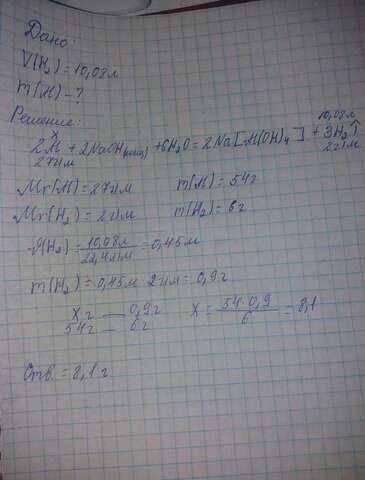 Дано:
V(H₂)=10,08л
m(Al)-?
Решение:
10,08л
2Al + 2NaOH(конц) + 6H₂O = 2Na[Al(OH)₄] + 3H₂↑
27г/м 2г/м
Mr(Al)=27г/м m(Al)=54г
Mr(H₂)=2г/м m(H₂)=6г
ν(H₂)= 10,08л / 22,4л/м = 0,45м
m(H₂)=0,45м · 2г/м = 0,9г
Xг — 0,9г X = 54·0,9 / 6 = 8,1
54г — 6г
Отв. = 8,1г